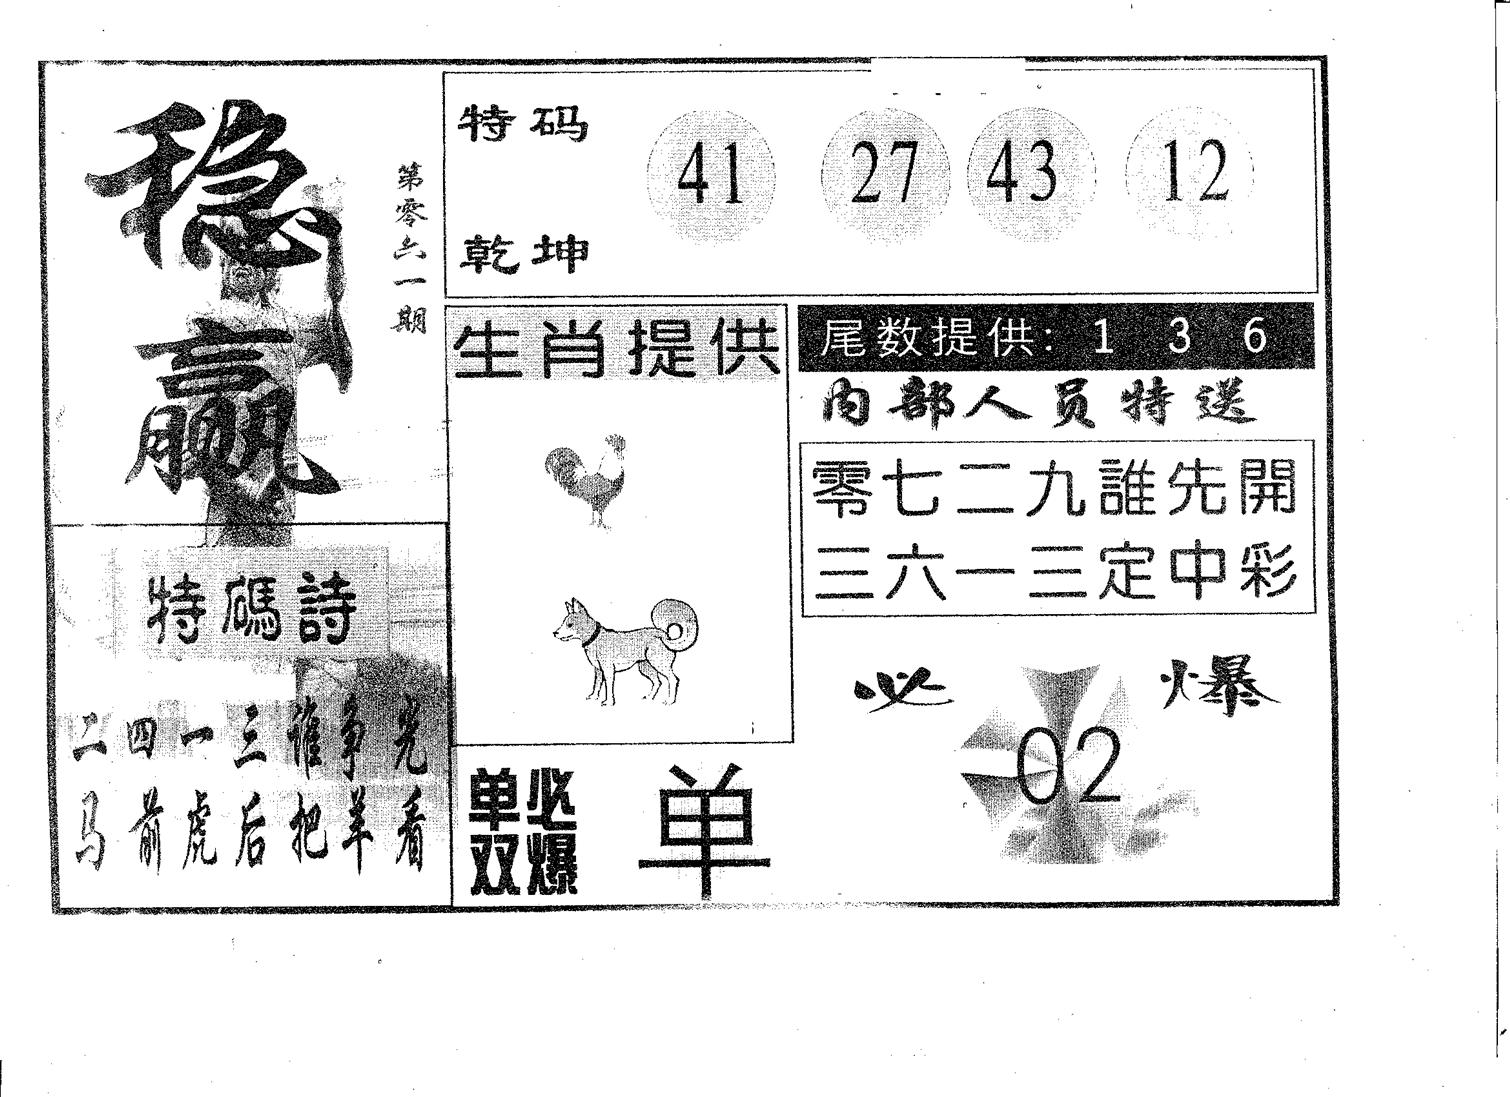 稳赢
第零六一期
特码
乾坤
41 27 43 12
生肖提供
尾数提供：1 3 6
内部人员特送
零七二九誰先開
三六一三定中彩
特碼詩
二四一三谁争先
马前虎后把羊看
单双必爆
单
必爆
02